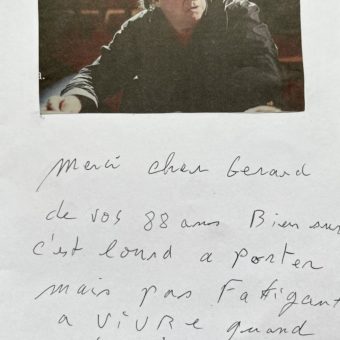 a.
Merci cher Gerard
de vos 88 ans Bien sur
c'est lourd a porter
mais pas Fatigant
a VIVRE quand